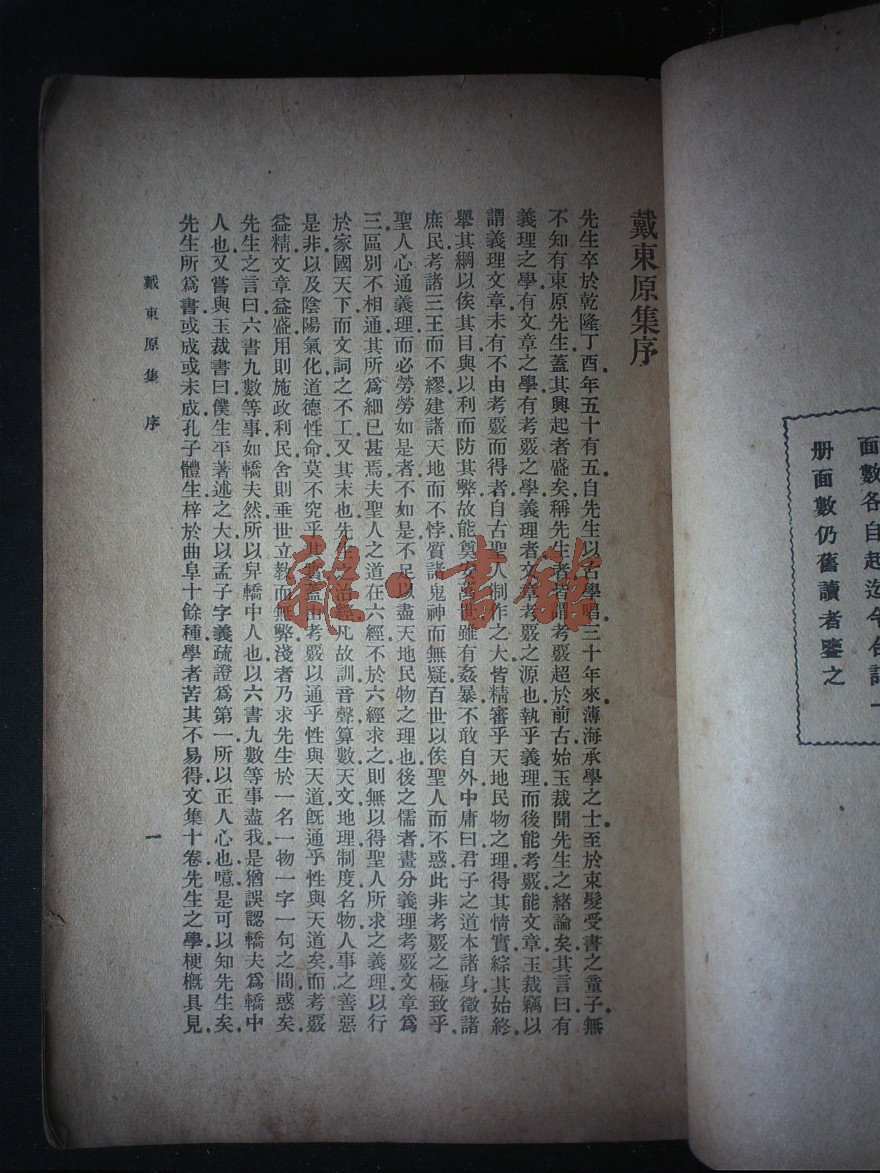 面數各自起迄今合訂一
册面數仍舊讀者鑒之
戴東原集序
先生卒於乾隆丁酉年五十有五自先生以古學唱三十年來薄海承學之士至於束髮受書之童子無
不知有東原先生蓋其興起者盛矣稱先生者皆謂考覈超於前古始玉裁聞先生之緒論矣其言曰有
義理之學有文章之學有考覈之學義理者文章考覈之源也執乎義理而後能考覈能文章玉裁竊以
謂義理文章未有不由考覈而得者自古聖人制作之大皆精審乎天地民物之理得其情實綜其始終
舉其綱以俟其目與以利而防其弊故能奠安萬世雖有姦暴不敢自外中庸曰君子之道本諸身徵諸
庶民考諸三王而不繆建諸天地而不悖質諸鬼神而無疑百世以俟聖人而不惑此非考覈之極致乎
聖人心通義理而必勞勞如是者不如是不足以盡天地民物之理也後之儒者畫分義理考覈文章爲
三區別不相通其所爲細已甚焉夫聖人之道在六經不於六經求之則無以得聖人所求之義理以行
於家國天下而文詞之不工又其末也先生之治經凡故訓音聲算數天文地理制度名物人事之善惡
是非以及陰陽氣化道德性命莫不究乎其實蓋由考覈以通乎性與天道既通乎性與天道矣而考覈
益精文章益盛用則施政利民舍則垂世立教而無弊淺者乃求先生於一名一物一字一句之間惑矣
先生之言曰六書九數等事如轎夫然所以舁轎中人也以六書九數等事盡我是猶誤認轎夫爲轎中
人也又嘗與玉裁書曰僕生平著述之大以孟子字義疏證爲第一所以正人心也噫是可以知先生矣
先生所爲書或成或未成孔子體生梓於曲阜十餘種學者苦其不易得文集十卷先生之學梗概具見
戴東原集 序
一
雜·書館